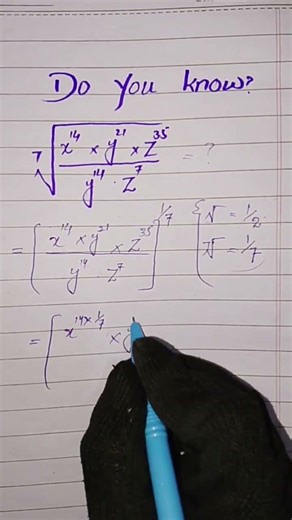 Do you know?
⁷√(x¹⁴ × y²¹ × z³⁵ / y¹⁴ · z⁷) = ?
= [x¹⁴ × y²¹ × z³⁵ / y¹⁴ · z⁷]^1/7 {√ = 1/2
⁷√ = 1/7
= [x^14×1/7 × y